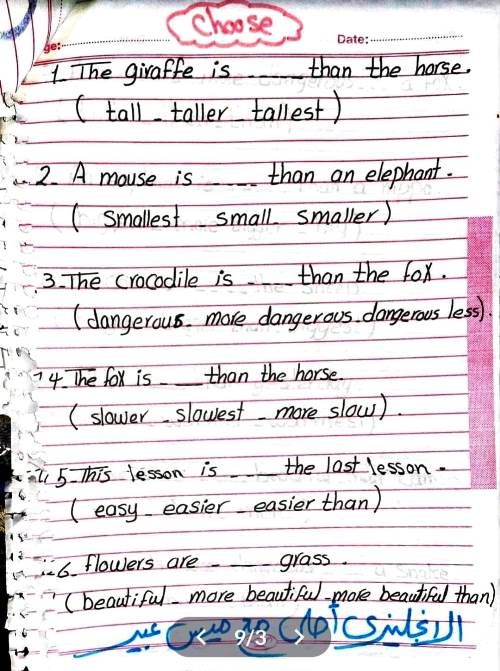 Choose
ge: Date:
1_ The giraffe is ____ than the horse.
( tall _ taller _ tallest )
2_ A mouse is ____ than an elephant.
( smallest small _ smaller )
3_ The crocodile is ____ than the fox.
(dangerous _ more dangerous _ dangerous less).
4_ The fox is ____ than the horse.
( slower _ slowest _ more slow ).
5_ This lesson is ____ the last lesson.
( easy _ easier _ easier than )
6_ flowers are ____ grass.
(beautiful _ more beautiful _ more beautiful than)
الانجليزى أحلى مع ميس عبير
9/3